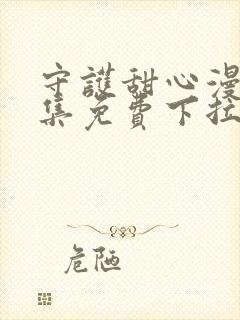 守護甜心漫
集免費下拉
危陋